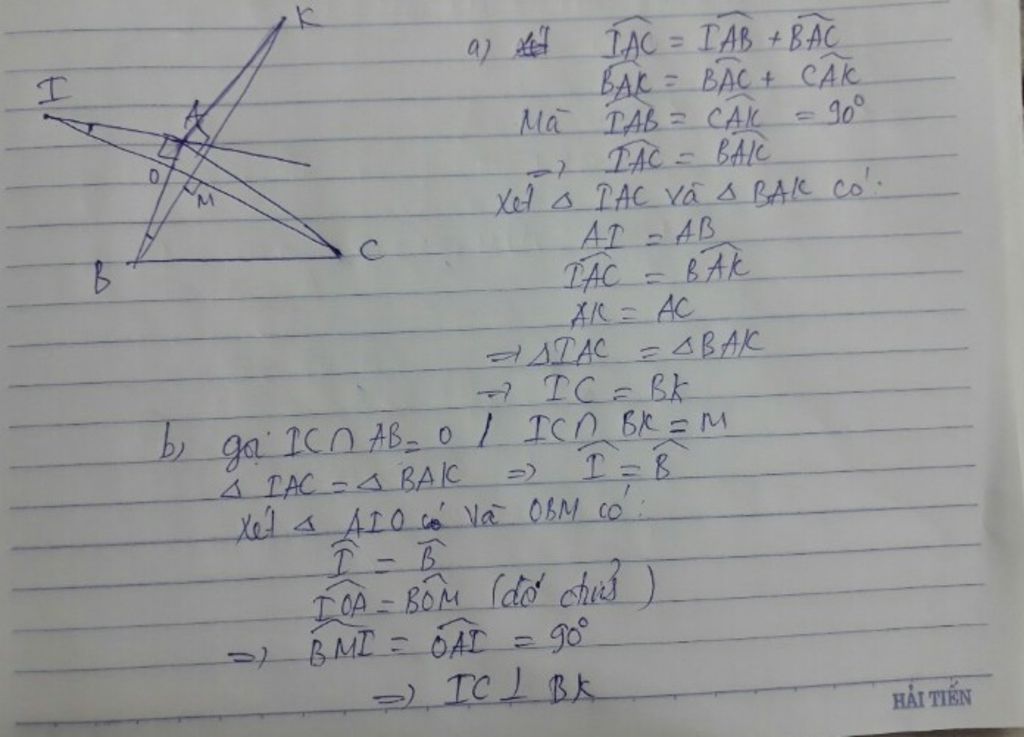 K
I
A
O
M
B
C
a) \widehat{IAC} = \widehat{IAB} + \widehat{BAC}
\widehat{BAK} = \widehat{BAC} + \widehat{CAK}
Mà \widehat{IAB} = \widehat{CAK} = 90°
=> \widehat{IAC} = \widehat{BAK}
Xét Δ IAC và Δ BAK có:
AI = AB
\widehat{IAC} = \widehat{BAK}
AK = AC
=> ΔIAC = ΔBAK
=> IC = BK
b) gọi IC ∩ AB = O / IC ∩ BK = M
Δ IAC = Δ BAK => \widehat{I} = \widehat{B}
Xét Δ AIO và OBM có:
\widehat{I} = \widehat{B}
\widehat{IOA} = \widehat{BOM} (đối đỉnh)
=> \widehat{BMI} = \widehat{OAI} = 90°
=> IC ⊥ BK
HẢI TIẾN